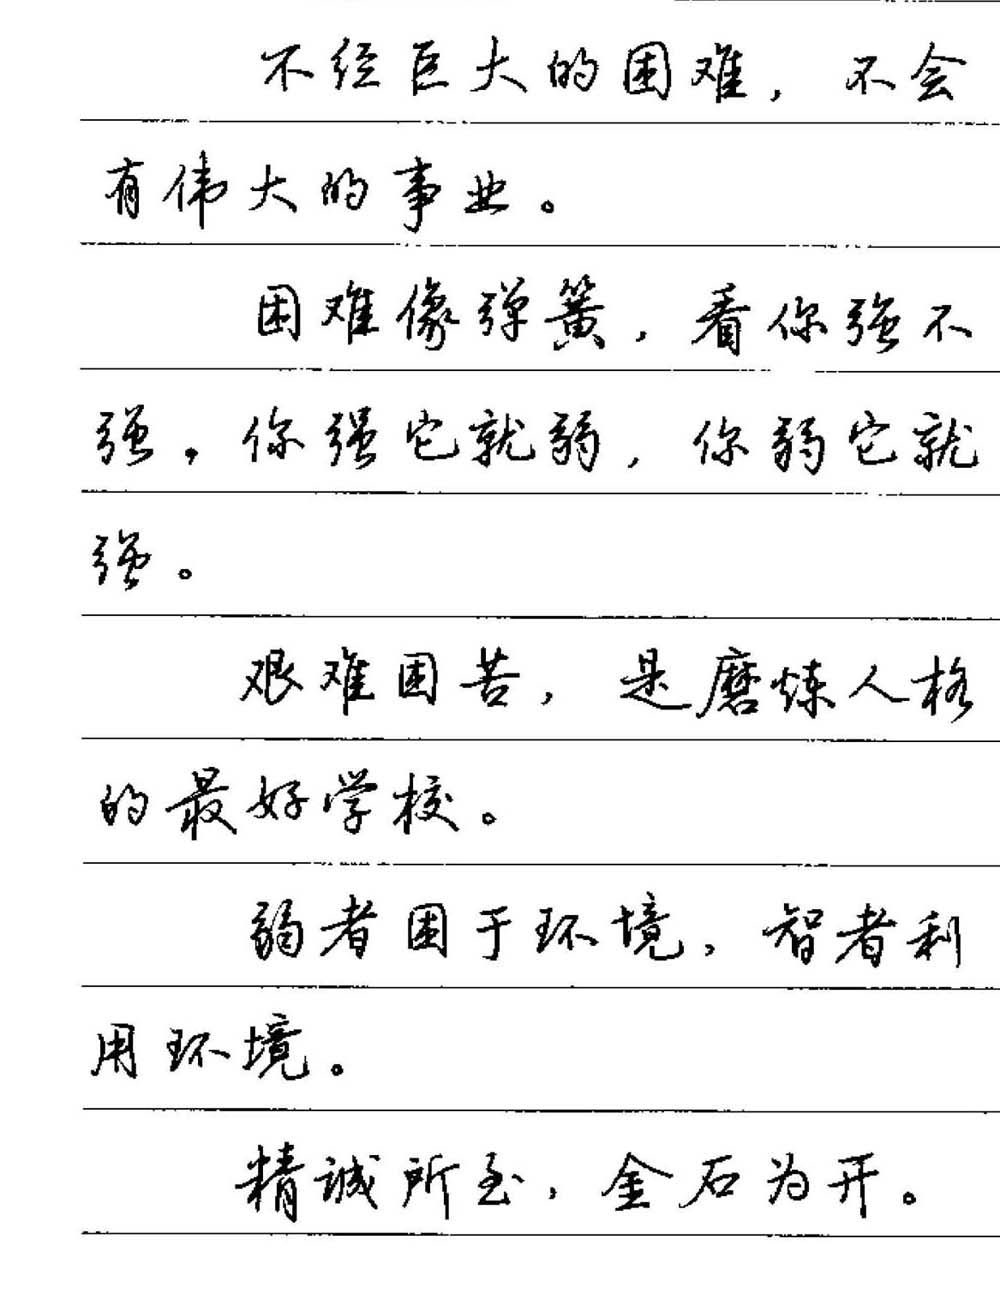 不经巨大的困难，不会
有伟大的事业。
困难像弹簧，看你强不
强。你强它就弱，你弱它就
强。
艰难困苦，是磨炼人格
的最好学校。
弱者困于环境，智者利
用环境。
精诚所至，金石为开。